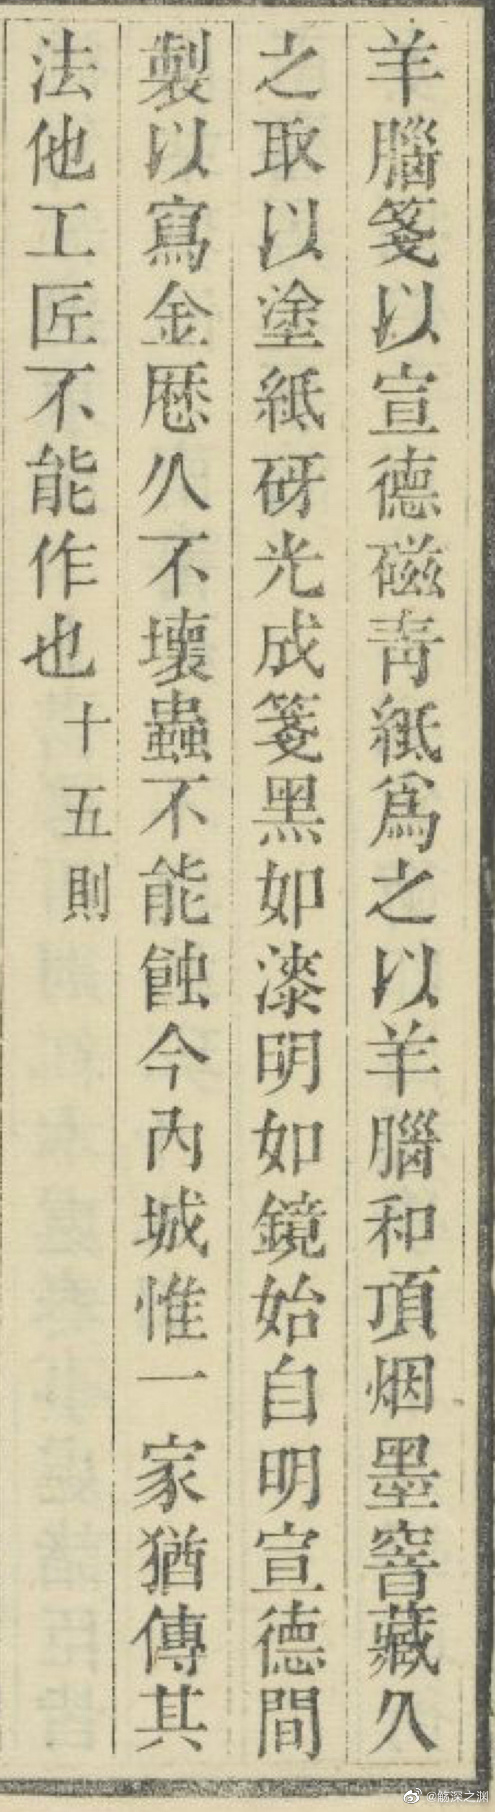 羊腦箋以宣德磁青紙爲之以羊腦和頂烟墨窨藏久
之取以塗紙砑光成箋黑如漆明如鏡始自明宣德間
製以寫金歷久不壞蟲不能蝕今內城惟一家猶傳其
法他工匠不能作也十五則
@觞深之渊